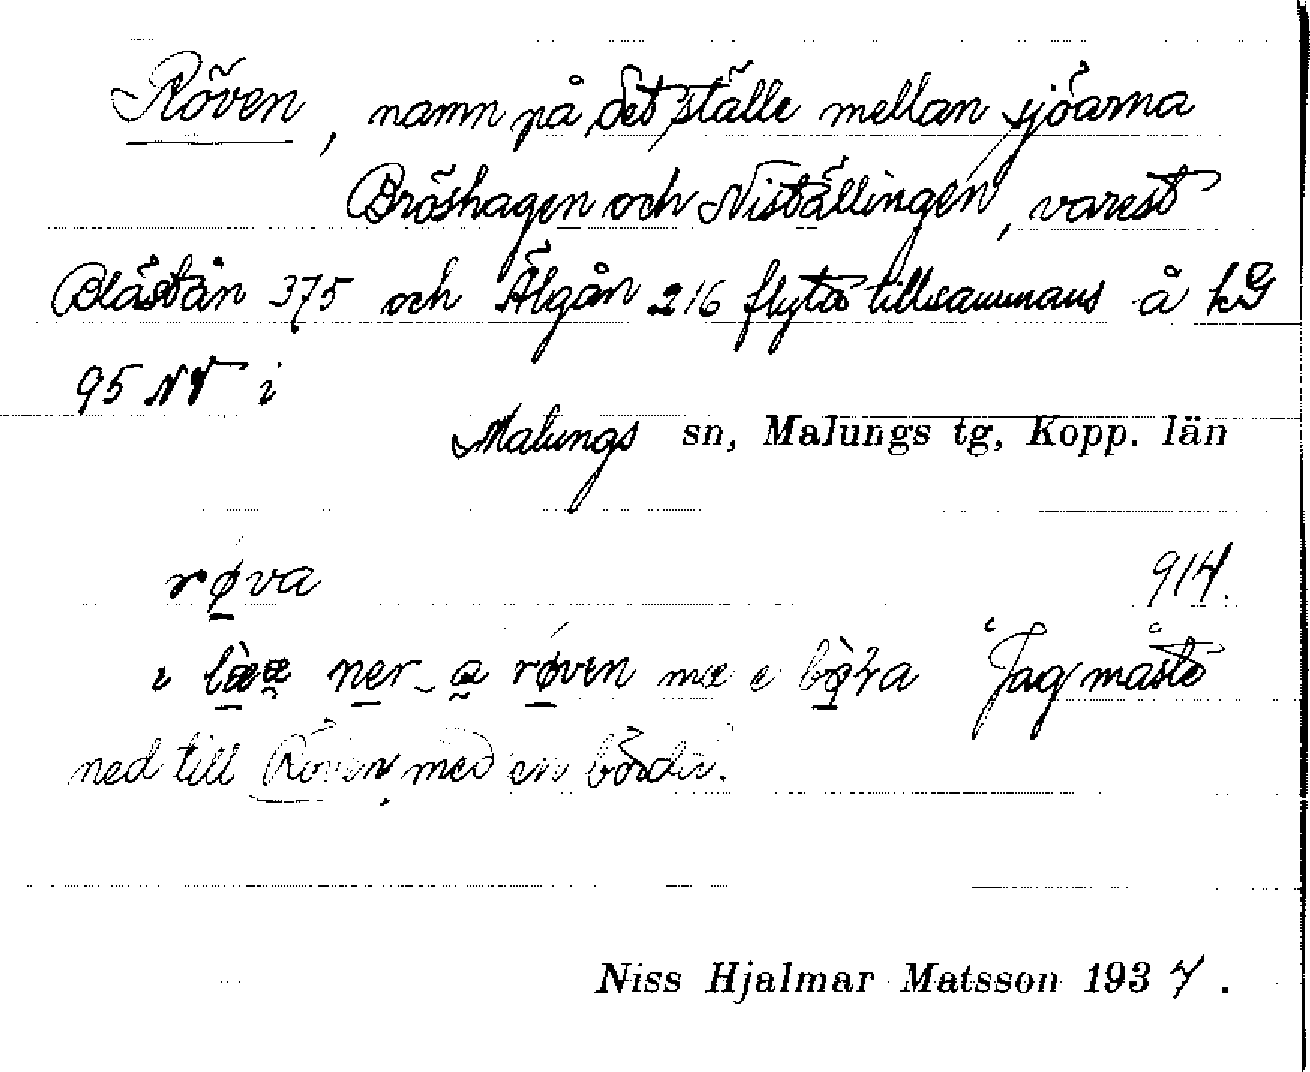 Röven, namn på det ställe mellan sjöarna
Bröshagen och Niställingen, varest
Blästån 375 och Älgån 216 flyta tillsammans å kG
95 NV i
Malungs sn, Malungs tg, Kopp. län
røva 914.
ner røven mæ e Jag måste
ned till Röven med en börda.
Niss Hjalmar Matsson 1937.